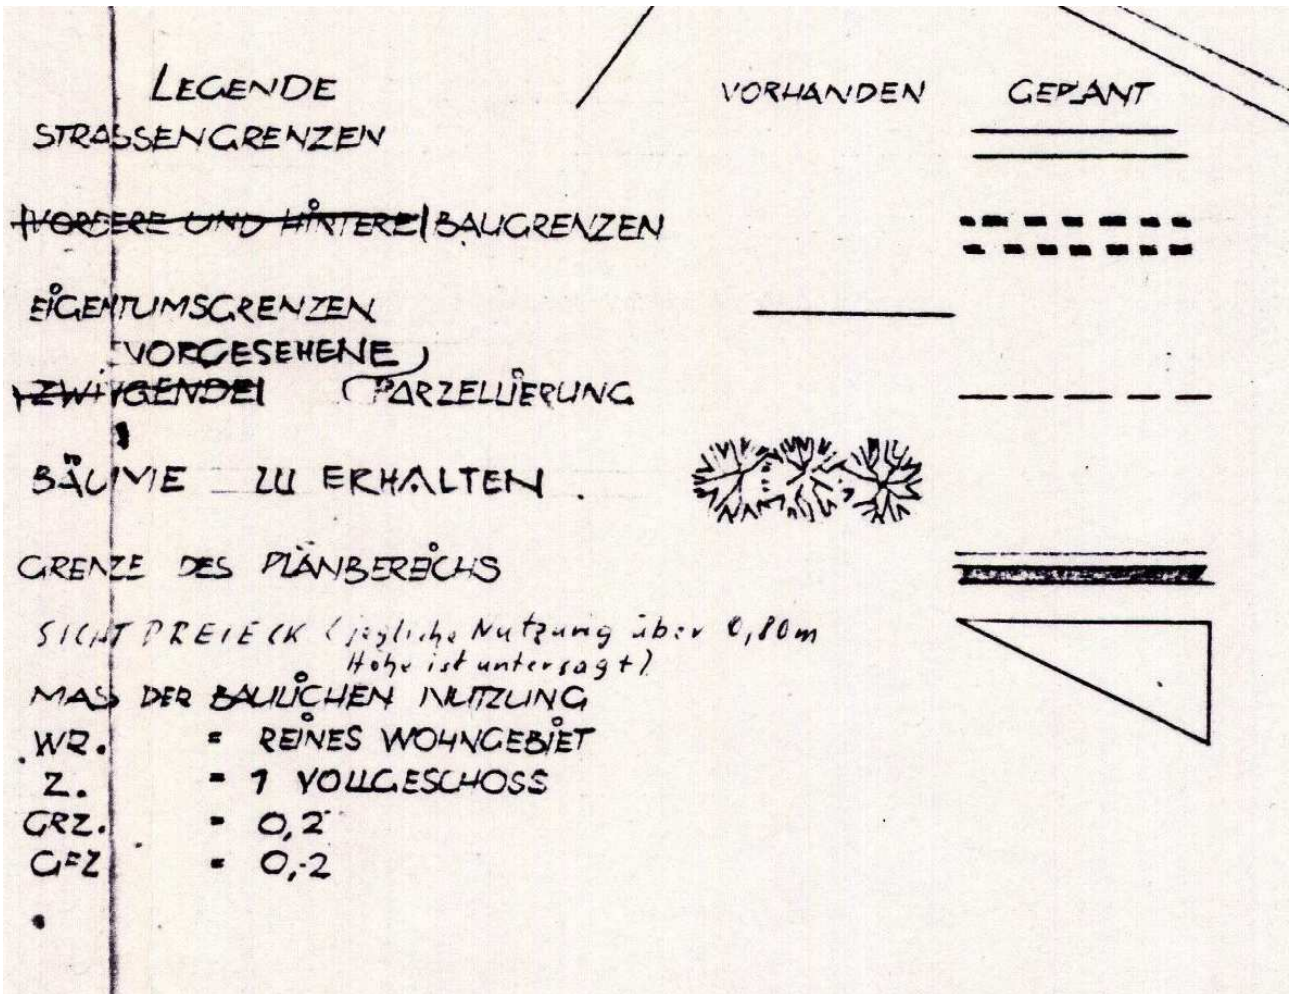 LEGENDE VORHANDEN GEPLANT
STRASSENGRENZEN
VORDERE UND HINTERE BAUGRENZEN
EIGENTUMSGRENZEN
VORGESEHENE
ZWINGENDE PARZELLIERUNG
BÄUME ZU ERHALTEN.
GRENZE DES PLANBEREICHS
SICHTDREIECK (jegliche Nutzung über 0,80m
Höhe ist untersagt)
MAS DER BAULICHEN NUTZUNG
WR. = REINES WOHNGEBIET
Z. = 1 VOLLGESCHOSS
GRZ. = 0,2
GFZ = 0,2